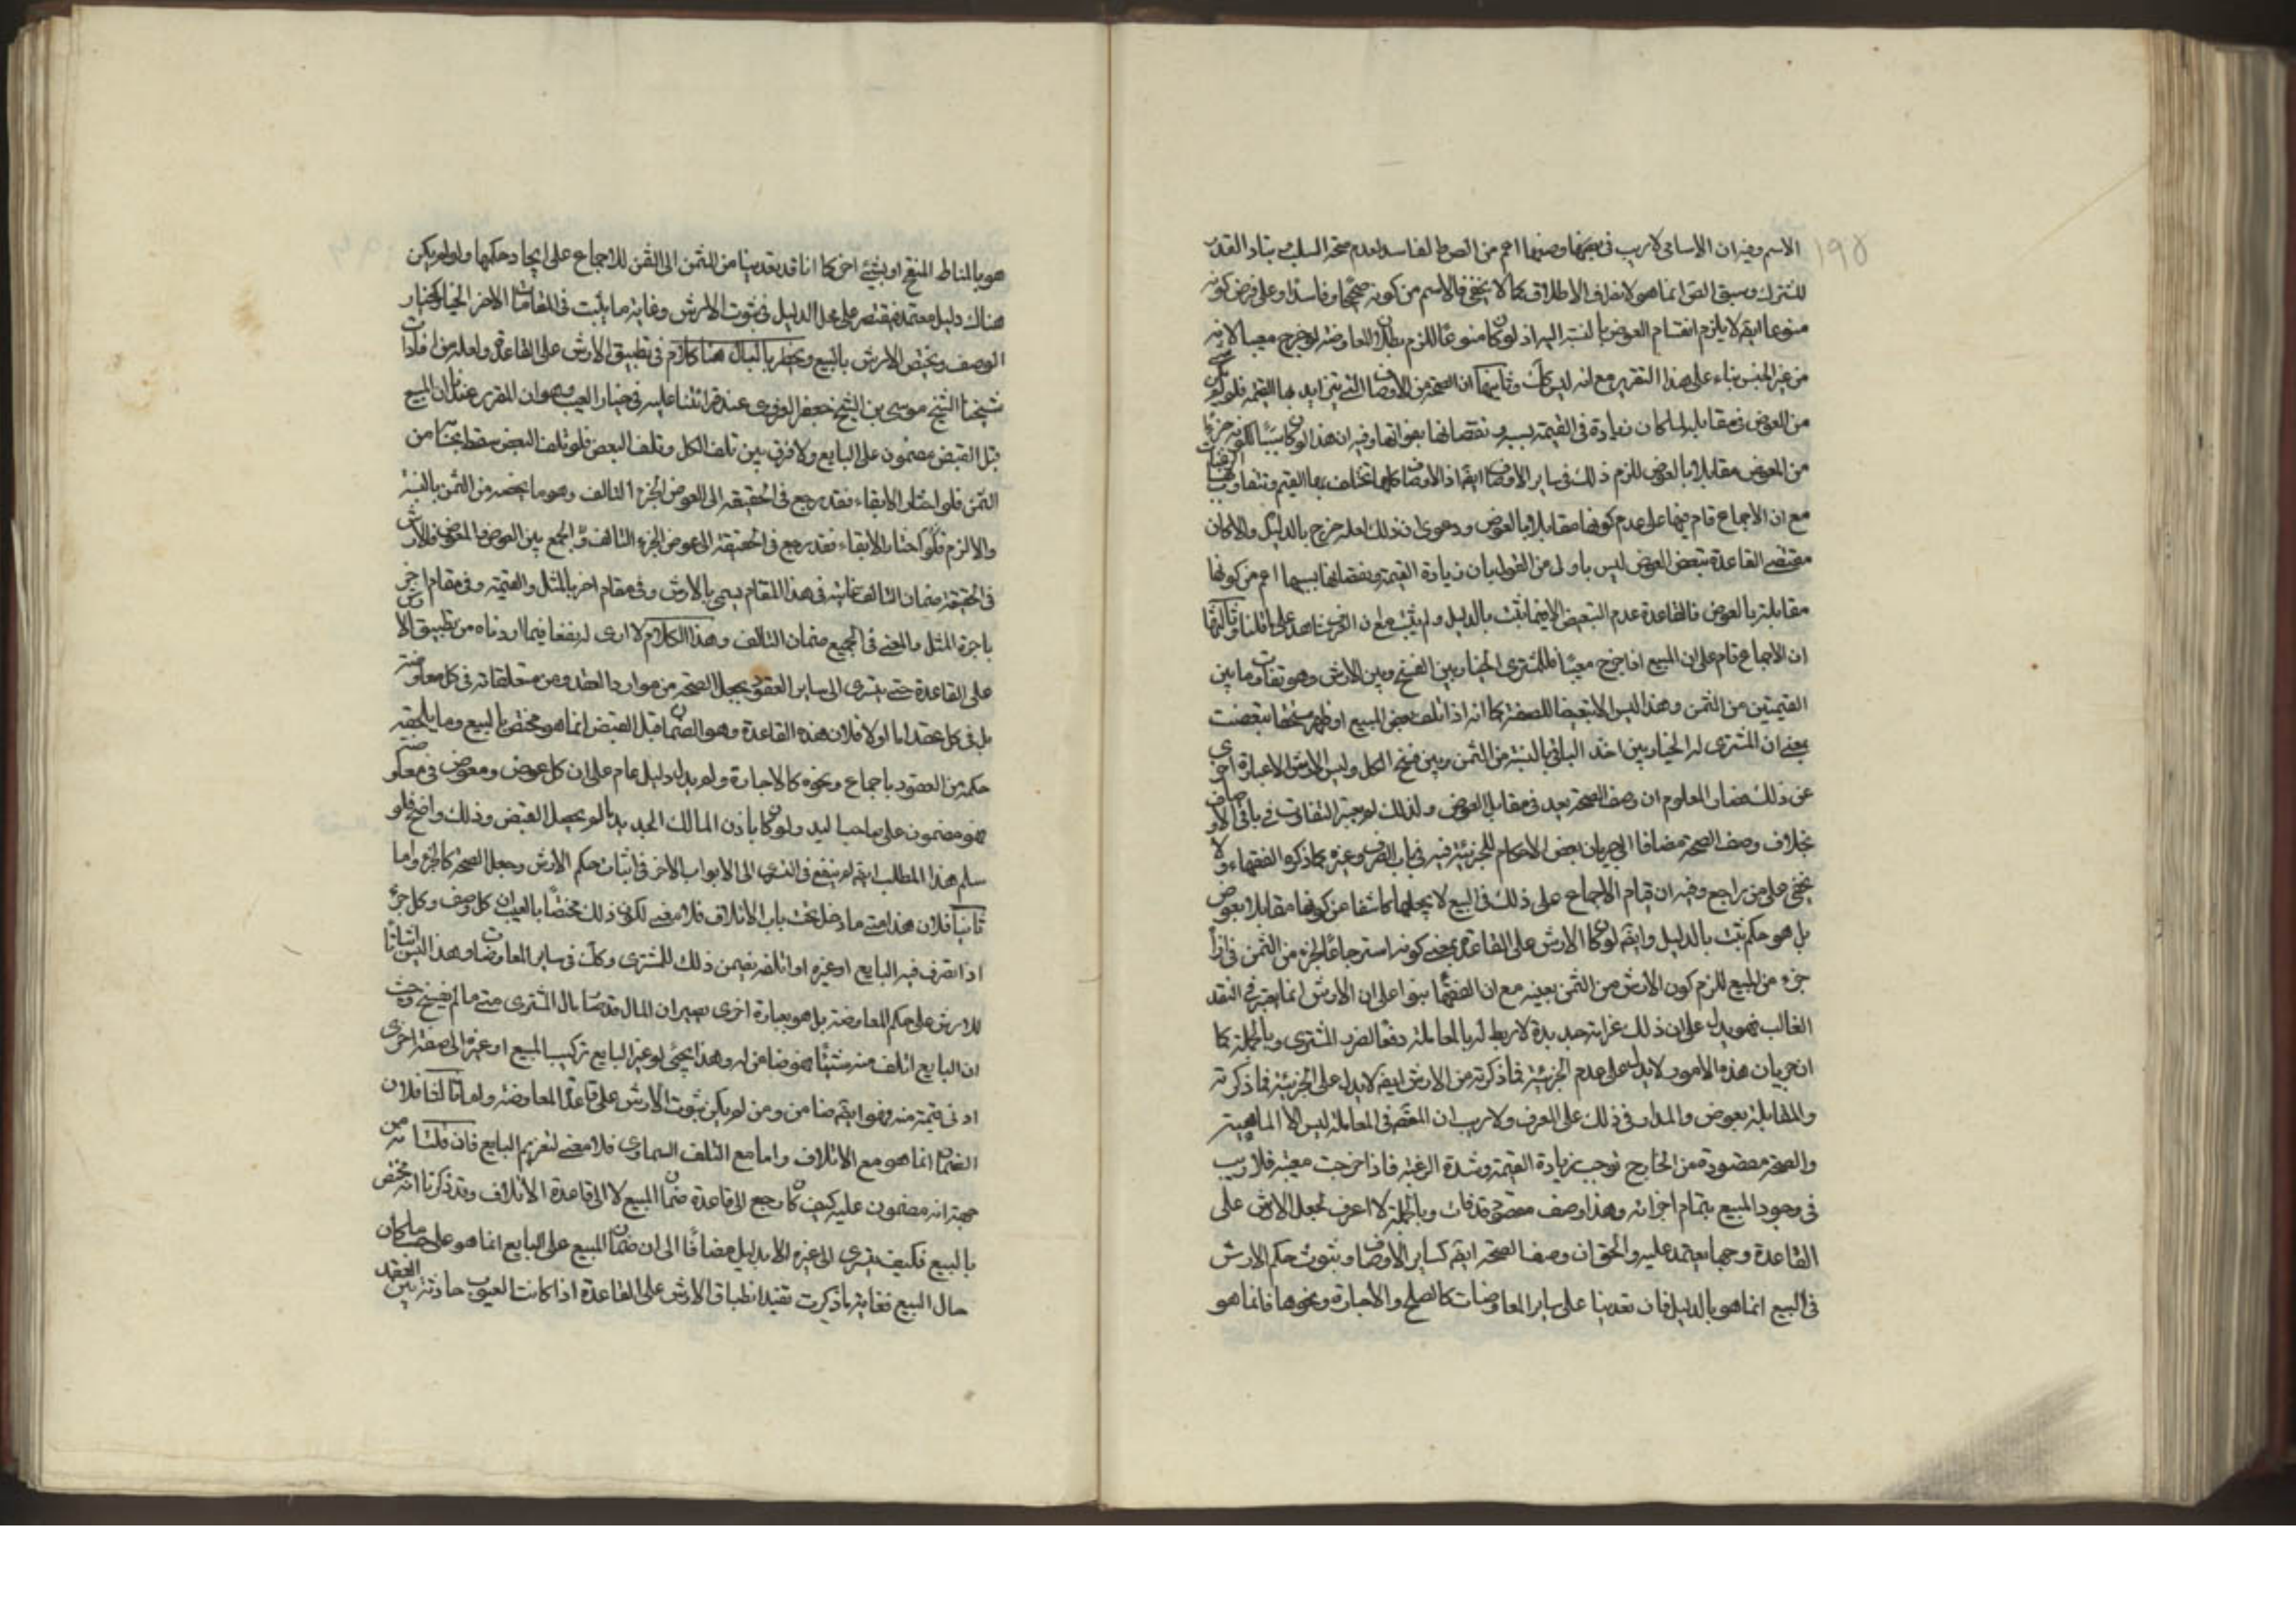 ١٩٥
الاسم وفيه ان الاسامي لاريب في وضعها اعم من الصحيح الفاسد لعدم صحة السلب وتبادر القدر
المشترك وسبق الصحة انما هو لانصراف الاطلاق كما لا يخفى فالاسم من كونه صحيحا وفاسدا وعلى فرض كونه
منوعا ايضا لا يلزم انقسام العوض بالنسبة اليه اذ لو كان منوعا للزم بطلان المعاوضة لو خرج معيبا لانه
من غير الجنس بناء على هذا التقرير مع انه ليس كك وثانيهما ان الصحة من الاوصاف التي تتزايد بها القيمة فلو لم يكن شئ
من العوض في مقابلها لما كان زيادة في القيمة بسببه ونقصانها بفواتها وفيه ان هذا لو كان سببا لكونه جزءا
من المعوض مقابلا بالعوض للزم ذلك في ساير الاوصاف ايضا اذ الاوصاف كلها تختلف بها القيم وتتفاوت بها الرغبات
مع ان الاجماع قام فيها على عدم كونها مقابلا بالعوض ودعوى ان ذلك لعله خرج بالدليل والا كان
مقتضى القاعدة تبعض العوض ليس باولى من القول بان زيادة القيمة ونقصانها بسببها اعم من كونها
مقابلة بالعوض فالقاعدة عدم التبعيض الا فيما ثبت بالدليل ولم يثبت مع ان العرف شاهد على ما قلنا وثالثها
ان الاجماع قام على ان المبيع اذا خرج معيبا فللمشتري الخيار بين الفسخ وبين الارش وهو تفاوت ما بين
القيمتين من الثمن وهذا ليس الا تبعيضا للصفقة كما انه اذا تلف بعض المبيع او ظهر مستحقا تبعضت
بمعنى ان المشتري له الخيار بين اخذ الباقي بالنسبة من الثمن وبين فسخ الكل وليس الارش الا عبارة اخرى
عن ذلك فصار المعلوم ان وصف الصحة يعد في مقابل العوض ولذلك لم يجبر التفاوت في باقي الاوصاف
بخلاف وصف الصحة مضافا الى جريان بعض الاحكام للجزئية فيه في باب الصرف وغيره كما ذكره الفقهاء ولا
يخفى على من راجع وفيه ان قيام الاجماع على ذلك في البيع لا يجعلها كاشفا عن كونها مقابلا بعوض
بل هو حكم ثبت بالدليل وايضا لو كان الارش على القاعدة بمعنى كونه استرجاعا لجزء من الثمن في ازاء
جزء من المبيع للزم كون الارش من الثمن بعينه مع ان الفقهاء بنوا على ان الارش انما يعتبر في النقد
الغالب فهو يدل على ان ذلك غرامة جديدة لا ربط له بالمعاملة دفعا لضرر المشتري وبالجملة كما
ان جريان هذه الامور لا يدل على عدم الجزئية فما ذكرته من الارش ايضا لا يدل على الجزئية فما ذكرته
والمقابلة بعوض والمدار في ذلك على العرف ولا ريب ان المقصود في المعاملة ليس الا الماهية
والصحة مقصودة من الخارج توجب زيادة القيمة وشدة الرغبة فاذا خرجت معيبة فلا ريب
في وجود المبيع بتمام اجزائه وهذا وصف مقصود قد فات وبالجملة لا اعرف لجعل الارش على
القاعدة وجها يعتمد عليه والحق ان وصف الصحة ايضا كساير الاوصاف وثبوت حكم الارش
في البيع انما هو بالدليل فان تعدينا على ساير المعاوضات كالصلح والاجارة ونحوها فانما هو
هو بالمناط المنقح او بشئ اخر كما انا قد تعدينا من المثمن الى الثمن للاجماع على ايجاد حكمها ولو لم يكن
هناك دليل معتمد فنقتصر على محل الدليل في ثبوت الارش وغاية ما يثبت في المقامات الاخر الخيار كخيار
الوصف ويختص الارش بالبيع ويخطر بالبال هنا كلام في تطبيق الارش على القاعدة ولعله من افادات
شيخنا الشيخ موسى بن الشيخ جعفر الغروي عند قرائتنا عليه في خيار العيب وهو ان المقرر عندنا ان المبيع
قبل القبض مضمون على البايع ولا فرق بين تلف الكل وتلف البعض فلو تلف البعض سقط بحسابه من
الثمن فلو اختار الابقاء فقد رجع في الحقيقة الى العوض الجزء التالف وهو ما يخصه من الثمن بالنسبة
والا لزم فلو اختار الابقاء فقد رجع في الحقيقة الى عوض الجزء التالف والجمع بين العوض والمعوض فالارش
في الحقيقة ضمان التالف غايته في هذا المقام يسمى بالارش وفي مقام اخر بالمثل والقيمة وفي مقام اخر
باجرة المثل والمعنى في الجميع ضمان التالف وهذا الكلام لا ارى له نفعا فيما اردناه من تطبيق الارش
على القاعدة حتى يتسرى الى ساير العقود بجعل الصحة من موارد العقد ومن متعلقاته في كل معاوضة
بل في كل عقد اما اولا فلان هذه القاعدة وهو الضمان قبل القبض انما هو مختص بالبيع وما يلحقه
حكمه من العقود باجماع ونحوه كالاجارة ولم يدل دليل عام على ان كل عوض ومعوض في معاوضة
فهو مضمون على صاحب اليد ولو كان باذن المالك الجديد ما لو يحصل القبض وذلك واضح فلو
سلم هذا المطلب ايضا لم ينفع في التسري الى الابواب الاخر في اثبات حكم الارش وجعل الصحة كالجزء واما
ثانيا فلان هذا متى ما دخل تحت باب الاتلاف فلا معنى لكون ذلك مختصا بالعيب لان كل وصف وكل جزء
اذا تصرف فيه البايع او غيره او اتلفه يضمن ذلك للمشتري وكك في ساير المعاوضات وهذا ليس اثباتا
للارش على حكم المعاوضة بل هو بعبارة اخرى يصير ان المال قد صار مال المشتري متى ما لم يفسخ وحيث
ان البايع اتلف منه شيئا فهو ضامن له وهذا يجئ لو غير البايع تركيب المبيع او غيره الى صفة اخرى
ادنى قيمة منه فهو ايضا ضامن ومن لم يكن ثبوت الارش على قاعدة المعاوضة واما ثالثا فلان
الضمان انما هو مع الاتلاف واما مع التلف السماوي فلا معنى لتغريم البايع فان قلت انه من
جهة انه مضمون عليه كيف كان رجع الى قاعدة ضمان المبيع لا الى قاعدة الاتلاف وقد ذكرنا انه مختص
بالبيع فكيف يتسرى الى غيره الا بدليل مضافا الى ان ضمان المبيع على البايع انما هو على حسب ما كان
حال البيع فغاية ما ذكرت تفيد انطباق الارش على القاعدة اذا كانت العيوب حادثة بين العقد